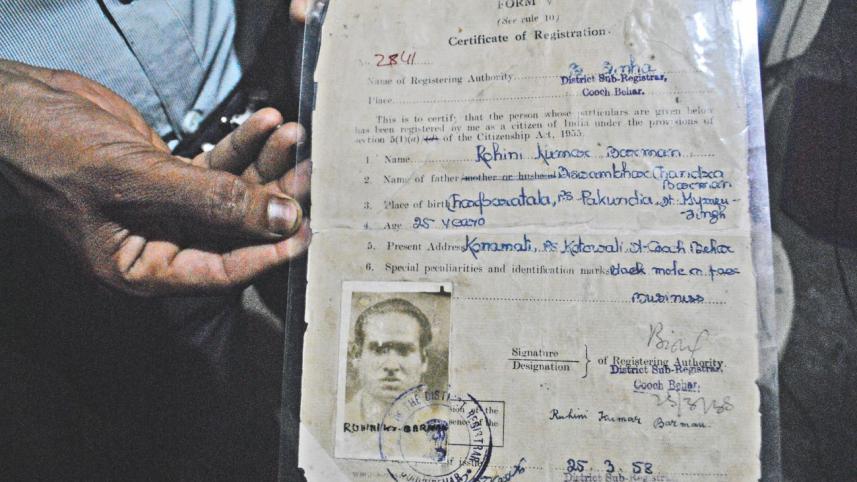 FORM V
(See rule 10)
Certificate of Registration.
No. 2841
Name of Registering Authority. B Sinha
District Sub-Registrar,
Place. Cooch Behar.
This is to certify that the person whose particulars are given below
has been registered by me as a citizen of India under the provisions of
section 5(1)(a) of the Citizenship Act, 1955.
1. Name. Rohini Kumar Barman
2. Name of father mother or husband Biswambhar Chandra
Barman
3. Place of birth P.S. Pakundia, Dt. Mymen-
Singh
4. Age 25 years
5. Present Address Konamati, P.S. Kotowali, Dt. Cooch Behar
6. Special peculiarities and identification marks black mole on face
Business
Signature
Designation
of Registering Authority.
District Sub-Registrar,
Cooch Behar.
25/3/58
Ruhini Kumar
Barman.
RUHINI KR. BARMAN
THE DISTRICT REGISTRAR
of the
of the
of issue
25. 3. 58
District Sub-Registrar